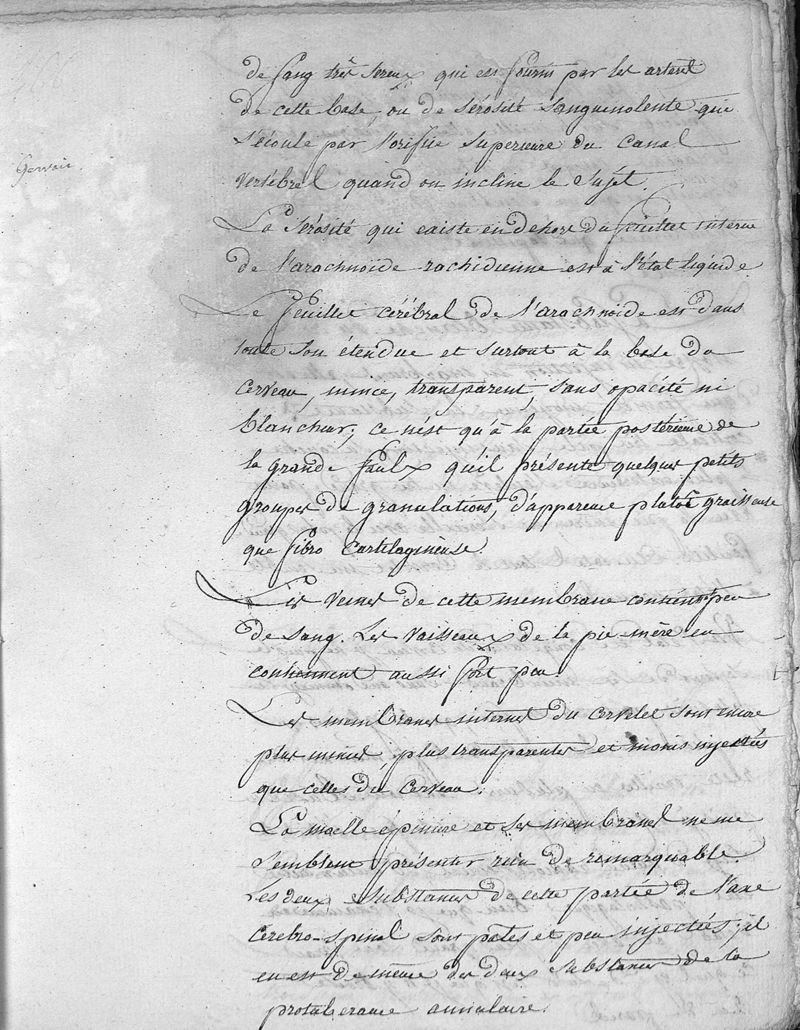 Gervais
de sang très sereux qui est fourni par les artères
de cette base, ou de sérosité sanguenolente qui
s'écoule par l'orifice superieure du canal
vertébral quand on incline le sujet.
La sérosité qui existe en dehors du feuillet interne
de l'arachnoïde rachidienne est à l'état liquide.
Le feuillet cérébral de l'arachnoïde est dans
toute son étendue et surtout à la base du
cerveau, mince, transparent, sans opacité ni
blancheur; ce n'est qu'à la partie postérieure de
la grande faulx qu'il présente quelques petits
groupes de granulations, d'apparence plutôt graisseuse
que fibro cartilagineuse.
Les veines de cette membrane contiennent peu
de sang. Les vaisseaux de la pie mère en
contiennent aussi fort peu.
Les membranes internes du cervelet sont encore
plus minces, plus transparentes et moins injectées
que celles du cerveau.
La moelle épinière et ses membranes ne me
semblent présenter rien de remarquable.
Les deux substances de cette partie de l'axe
cérebro-spinal sont pales et peu injectées; il
en est de même des deux substances de la
protuberance annulaire.